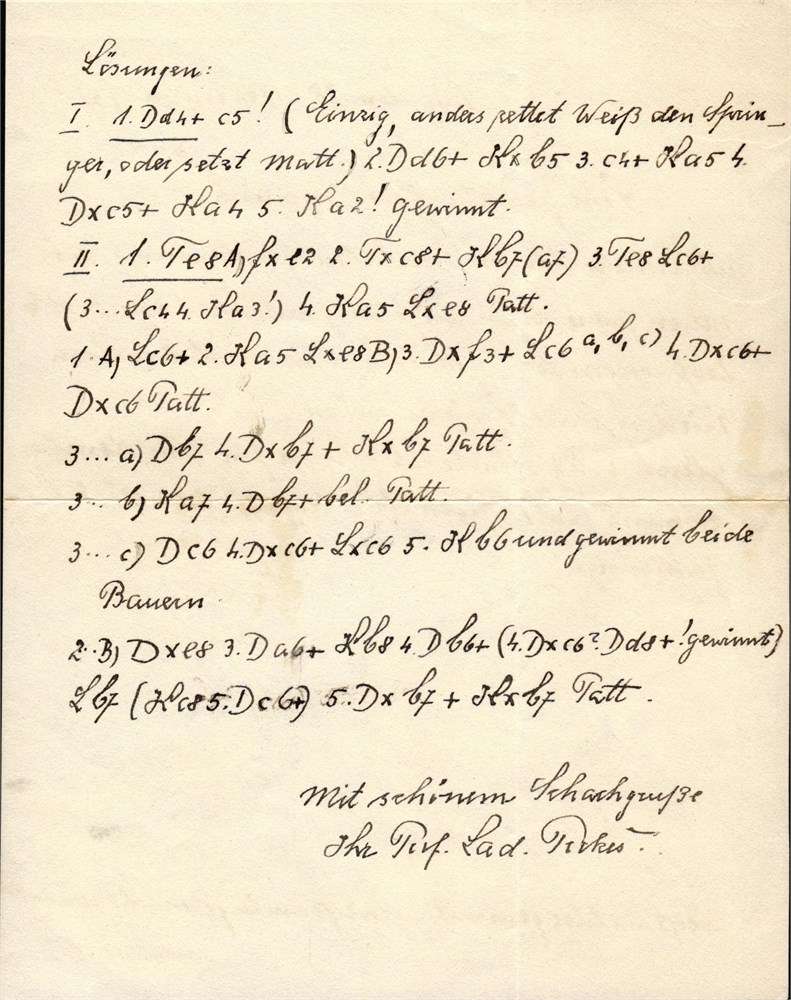 Lösungen:
I. 1. Dd4+ c5! (Einzig, anders rettet Weiß den Sprin-
ger, oder setzt matt.) 2. Dd6+ K×b5 3. c4+ Ka5 4.
D×c5+ Ka4 5. Ka2! gewinnt.
II. 1. Te8 A) f×e2 2. T×c8+ Kb7(a7) 3. Te8 Lc6+
(3... Lc4 4. Ka3!) 4. Ka5 L×e8 Patt.
1. A) Lc6+ 2. Ka5 L×e8 B) 3. D×f3+ Lc6 a, b, c) 4. D×c6+
D×c6 Patt.
3... a) Db7 4. D×b7+ K×b7 Patt.
3... b) Ka7 4. Db7+ bel. Patt.
3... c) Dc6 4. D×c6+ L×c6 5. Kb6 und gewinnt beide
Bauern.
2..B) D×e8 3. Da6+ Kb8 4. Db6+ (4. D×c6? Dd8+! gewinnt)
Lb7 (Kc8 5. Dc6+) 5. D×b7+ K×b7 Patt.
Mit schönem Schachgruße
Ihr Prof. Lad.